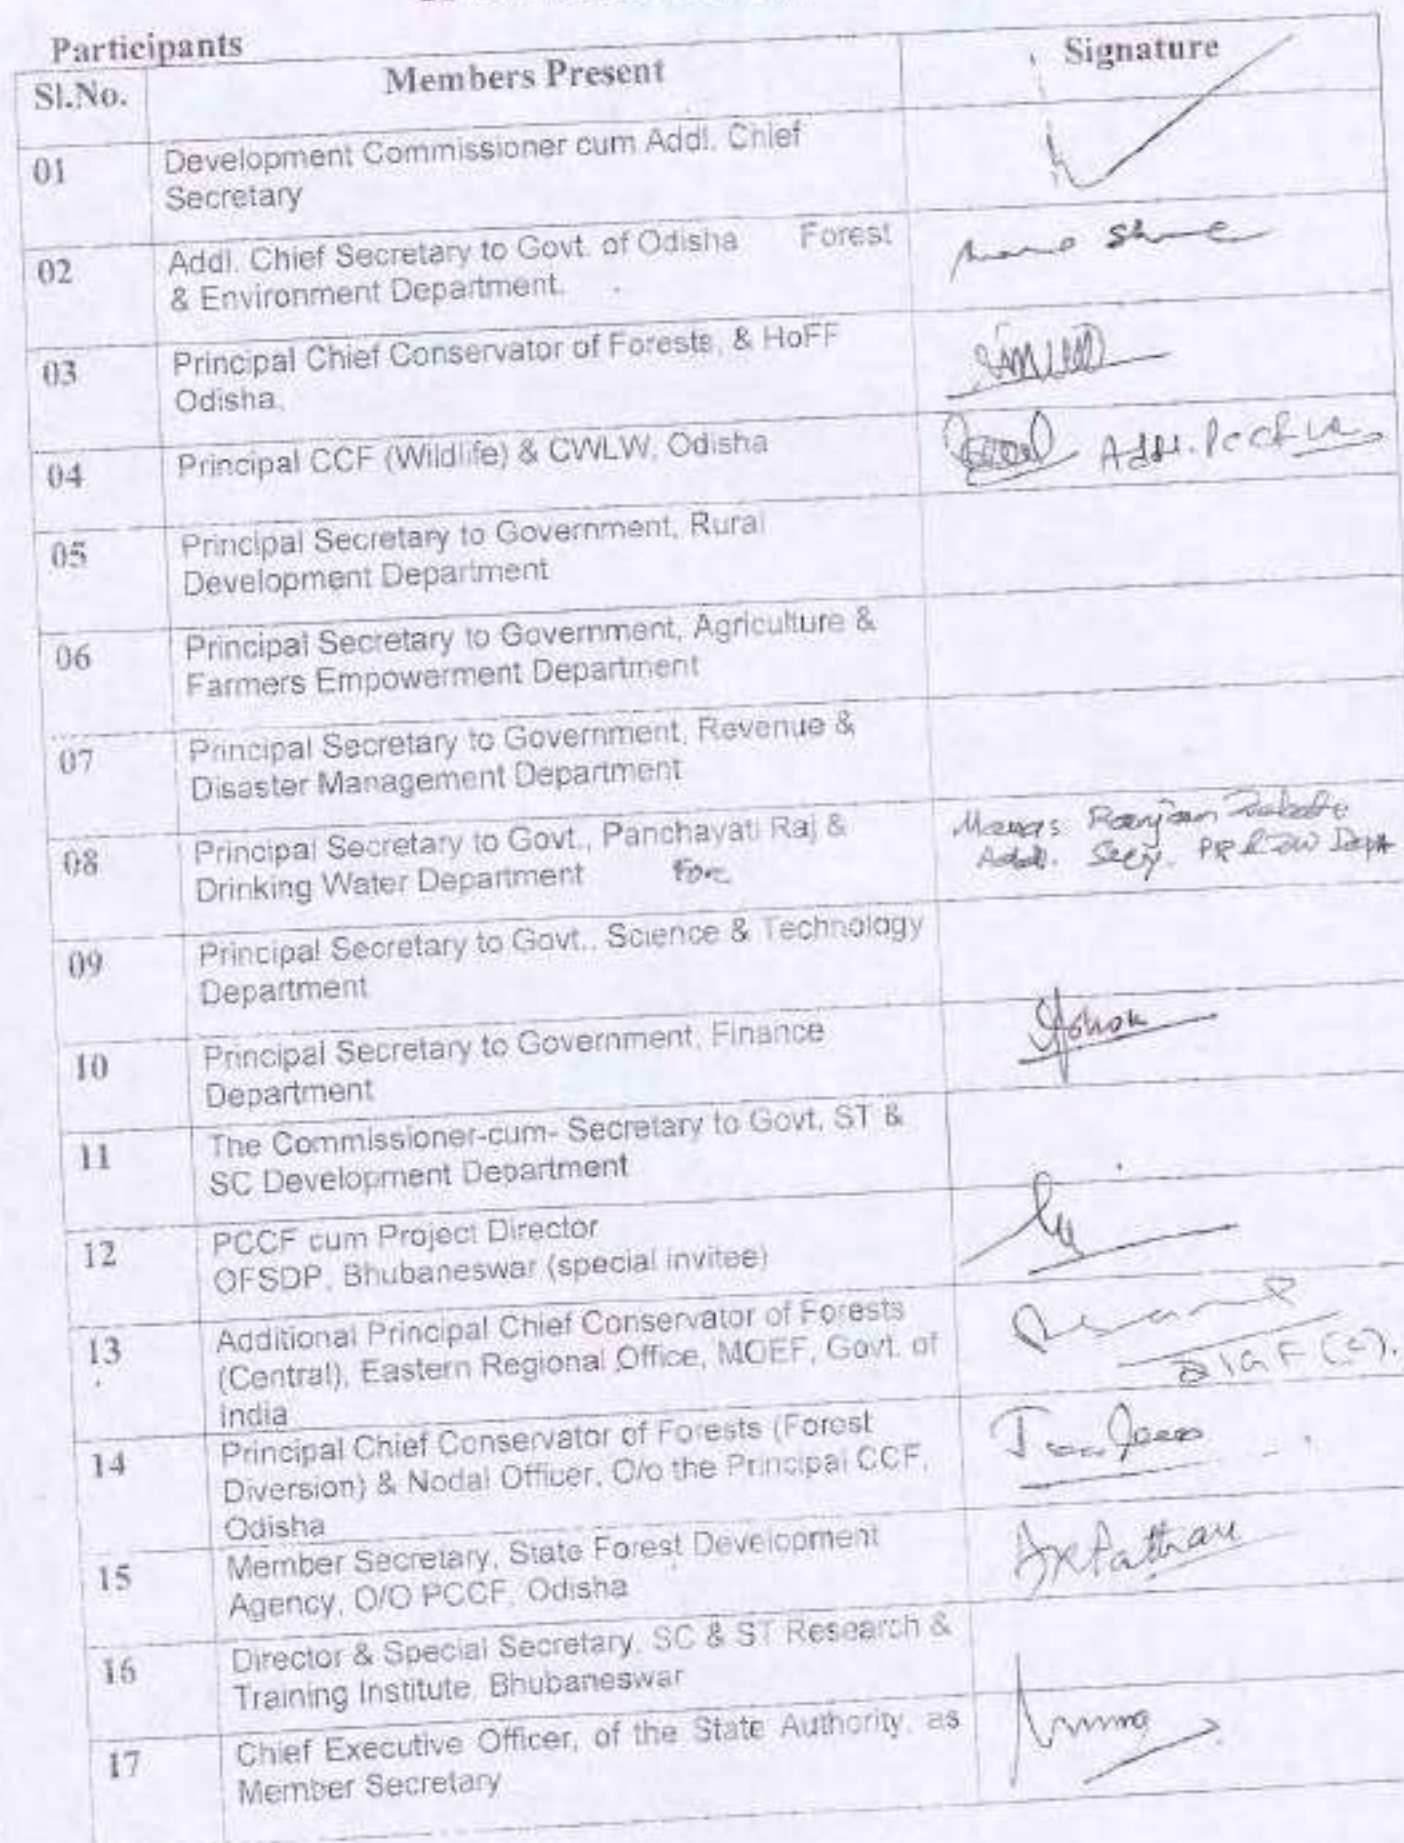 Participants
Sl.No. Members Present Signature
01 Development Commissioner cum Addl. Chief
Secretary
02 Addl. Chief Secretary to Govt. of Odisha Forest
& Environment Department.
03 Principal Chief Conservator of Forests, & HoFF
Odisha,
04 Principal CCF (Wildlife) & CWLW, Odisha Addl. PCCF
05 Principal Secretary to Government, Rural
Development Department
06 Principal Secretary to Government, Agriculture &
Farmers Empowerment Department
07 Principal Secretary to Government, Revenue &
Disaster Management Department
08 Principal Secretary to Govt., Panchayati Raj & Manas Ranjan
Drinking Water Department For Addl. Secy. PR & DW Dept
09 Principal Secretary to Govt., Science & Technology
Department
10 Principal Secretary to Government, Finance Ashok
Department
11 The Commissioner-cum- Secretary to Govt, ST &
SC Development Department
12 PCCF cum Project Director
OFSDP, Bhubaneswar (special invitee)
13 Additional Principal Chief Conservator of Forests
(Central), Eastern Regional Office, MOEF, Govt. of DIGF (C).
India
14 Principal Chief Conservator of Forests (Forest
Diversion) & Nodal Officer, O/o the Principal CCF,
Odisha
15 Member Secretary, State Forest Development
Agency, O/O PCCF, Odisha
16 Director & Special Secretary, SC & ST Research &
Training Institute, Bhubaneswar
17 Chief Executive Officer, of the State Authority, as
Member Secretary